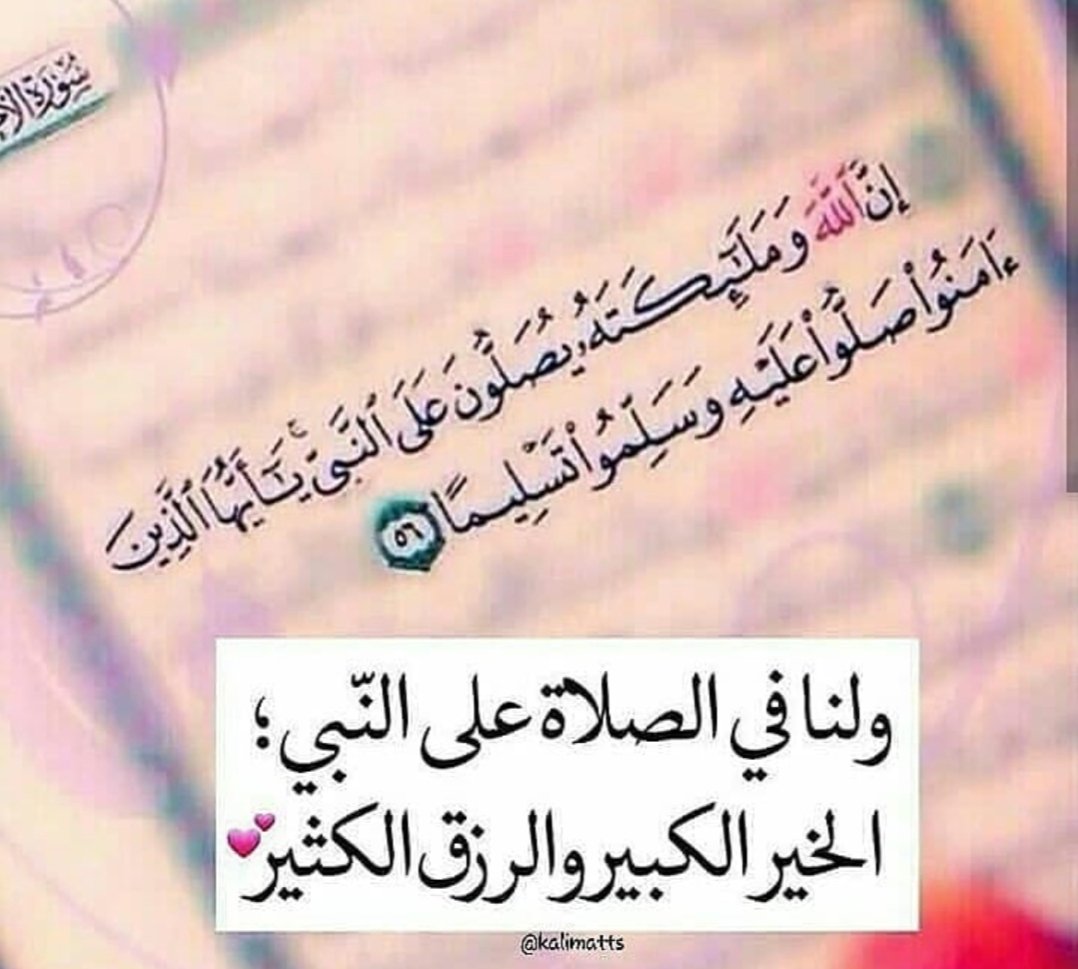 سُورَةُ
إِنَّ ٱللَّهَ وَمَلَٰٓئِكَتَهُۥ يُصَلُّونَ عَلَى ٱلنَّبِىِّ ۚ يَٰٓأَيُّهَا ٱلَّذِينَ
ءَامَنُوا۟ صَلُّوا۟ عَلَيْهِ وَسَلِّمُوا۟ تَسْلِيمًا ٥٦
ولنا في الصلاة على النّبي؛
الخير الكبير والرزق الكثير💕
@kalimatts